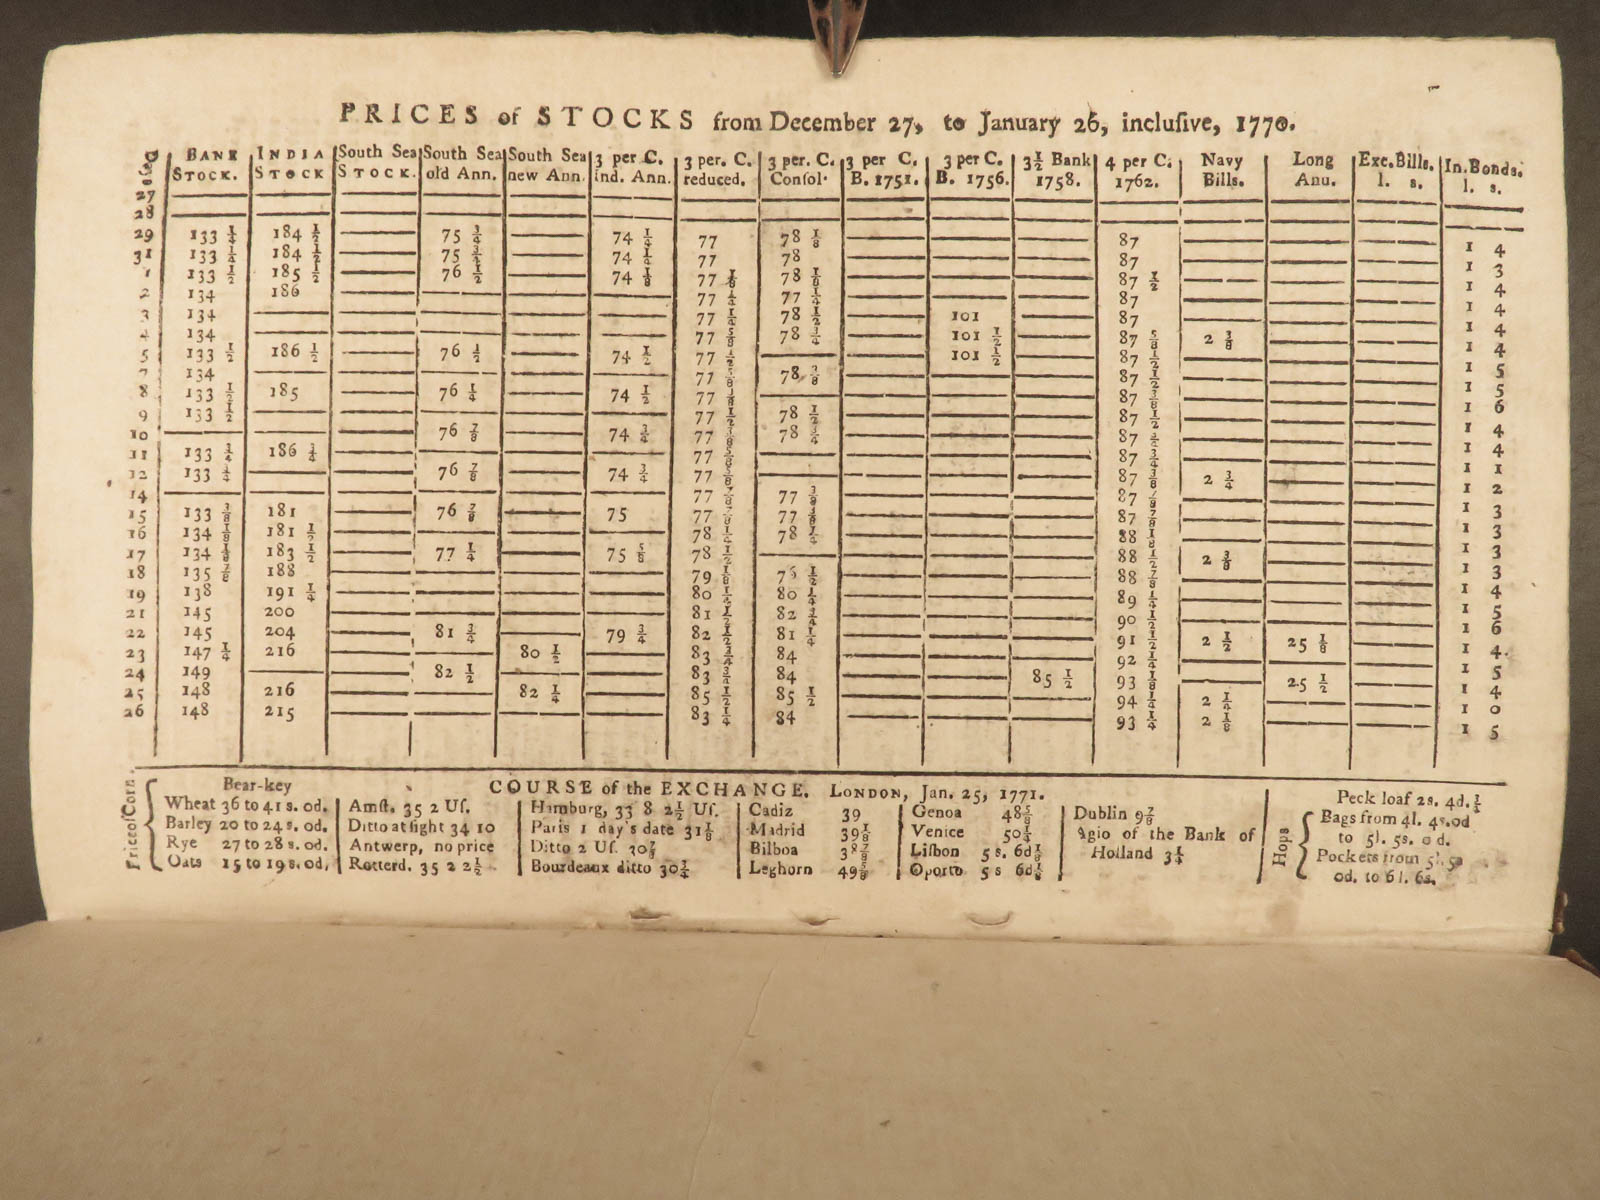 PRICES of STOCKS from December 27, to January 26, incluſive, 1770.
BANK STOCK. | INDIA STOCK | South Sea STOCK. | South Sea old Ann. | South Sea new Ann. | 3 per C. ind. Ann. | 3 per. C. reduced. | 3 per. C. Conſol. | 3 per C. B. 1751. | 3 per C. B. 1756. | 3½ Bank 1758. | 4 per C. 1762. | Navy Bills. | Long Anu. | Exc. Bills. l. s. | In. Bonds. l. s.
27
28
29 133 ¼ 184 ½ 75 ¾ 74 ¼ 77 78 ⅛ 87 1 4
31 133 ½ 184 ½ 75 74 ¼ 77 78 87 1 3
1 133 ½ 185 ½ 76 ½ 74 ⅛ 77 78 87 ½ 1 4
2 134 186 77 ¼ 77 ¼ 87 1 4
3 134 77 ¼ 78 ½ 101 87 1 4
4 134 77 ⅝ 78 ¾ 101 ½ 87 ⅝ 2 ⅜ 1 4
5 133 ½ 186 ½ 76 ½ 74 ½ 77 ½ 101 ½ 87 ½ 1 5
7 134 77 ⅝ 78 ⅜ 87 ½ 1 5
8 133 ½ 185 76 ¼ 74 ½ 77 87 ⅜ 1 6
9 133 ½ 77 ½ 78 ½ 87 ½ 1 4
10 76 ⅞ 74 ¾ 77 78 ¾ 87 1 4
11 133 ¾ 186 77 87 ¾ 1 1
12 133 76 ⅞ 74 ¾ 77 87 2 ¾ 1 2
14 77 77 87 1 3
15 133 ⅜ 181 76 ⅞ 75 77 77 87 ⅞ 1 3
16 134 ⅛ 181 ½ 78 ¼ 78 ¼ 88 ⅛ 1 3
17 134 ⅛ 183 ½ 77 ¼ 75 ⅝ 78 ½ 88 ½ 2 ⅜ 1 3
18 135 ⅞ 188 79 ⅛ 88 ⅞ 1 4
19 138 191 ¼ 80 ¼ 80 ¼ 89 ¼ 1 5
21 145 200 81 ½ 82 90 ½ 1 6
22 145 204 81 ¾ 79 ¾ 82 ½ 81 ¼ 91 ½ 2 ½ 25 ⅛ 1 4
23 147 ¼ 216 80 ½ 83 ¾ 84 92 ¼ 1 5
24 149 82 ½ 83 ¾ 84 85 ½ 93 ⅛ 25 ½ 1 4
25 148 216 82 ¼ 85 ½ 85 ½ 94 ¼ 2 ¼ 1 0
26 148 215 83 ¼ 84 93 ¼ 2 ⅛ 1 5
Price of Corn.
Bear-key
Wheat 36 to 41 s. 0d.
Barley 20 to 24 s. 0d.
Rye 27 to 28 s. 0d.
Oats 15 to 19 s. 0d,
COURSE of the EXCHANGE. LONDON, Jan. 25, 1771.
Amſt. 35 2 Uſ.
Ditto at ſight 34 10
Antwerp, no price
Rotterd. 35 2 2½
Hamburg, 33 8 2½ Uſ.
Paris 1 day's date 31⅛
Ditto 2 Uſ. 30⅞
Bourdeaux ditto 30¾
Cadiz 39
Madrid 39⅛
Bilboa 38⅞
Leghorn 49⅝
Genoa 48⅝
Venice 50¼
Liſbon 5 s. 6d⅛
Oporto 5 s 6d⅛
Dublin 9⅞
Agio of the Bank of
Holland 3¼
Peck loaf 2s. 4d.
Hops
Bags from 4l. 4s. 0d
to 5l. 5s. 0 d.
Pockets from 5l. 5
0d. to 6l. 6s.